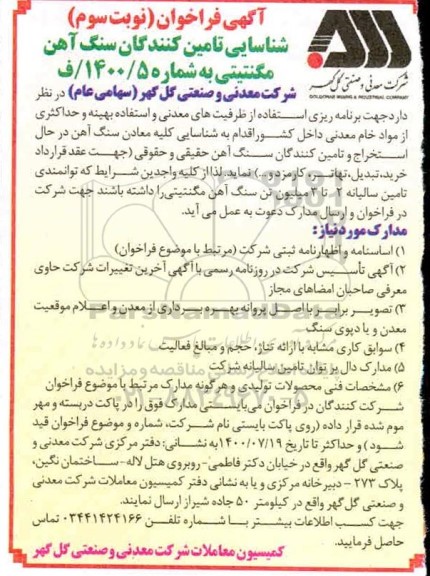 آگهی فراخوان (نوبت سوم)
شناسایی تامین کنندگان سنگ آهن
مگنتیتی به شماره ۱۴۰۰/۵/ف
شرکت معدنی و صنعتی گل گهر
GOLGOHAR MINING & INDUSTRIAL COMPANY
شرکت معدنی و صنعتی گل گهر (سهامی عام) در نظر
دارد جهت برنامه ریزی استفاده از ظرفیت های معدنی و استفاده بهینه و حداکثری
از مواد خام معدنی داخل کشور اقدام به شناسایی کلیه معادن سنگ آهن در حال
استخراج و تامین کنندگان سنگ آهن حقیقی و حقوقی (جهت عقد قرارداد
خرید، تبدیل، تهاتر و کارمزد و...) نماید. لذا از کلیه واجدین شرایط که توانمندی
تامین سالیانه ۲ تا ۳ میلیون تن سنگ آهن مگنتیتی را داشته باشند جهت شرکت
در فراخوان و ارسال مدارک دعوت به عمل می آید.
مدارک مورد نیاز:
۱) اساسنامه و اظهارنامه ثبتی شرکت (مرتبط با موضوع فراخوان)
۲) آگهی تأسیس شرکت در روزنامه رسمی با آگهی آخرین تغییرات شرکت حاوی
معرفی صاحبان امضاهای مجاز
۳) تصویر برابر با اصل پروانه بهره برداری از معدن و اعلام موقعیت
معدن و یا دپوی سنگ
۴) سوابق کاری مشابه با ارائه تناژ، حجم و مبالغ فعالیت
۵) مدارک دال بر توان تامین سالیانه شرکت
۶) مشخصات فنی محصولات تولیدی و هرگونه مدارک مرتبط با موضوع فراخوان
شرکت کنندگان در فراخوان می بایستی مدارک فوق را در پاکت دربسته و مهر
و موم شده قرار داده (روی پاکت بایستی نام شرکت، شماره و موضوع فراخوان قید
شود) و حداکثر تا تاریخ ۱۴۰۰/۰۷/۱۹ به نشانی: دفتر مرکزی شرکت معدنی و
صنعتی گل گهر واقع در خیابان دکتر فاطمی- روبروی هتل لاله- ساختمان نگین،
پلاک ۲۷۳ - دبیرخانه مرکزی و یا به نشانی دفتر کمیسیون معاملات شرکت معدنی
و صنعتی گل گهر واقع در کیلومتر ۵۰ جاده شیراز ارسال نمایند.
جهت کسب اطلاعات بیشتر با شماره تلفن ۰۳۴۴۱۴۲۴۱۶۶ تماس
حاصل فرمایید.
کمیسیون معاملات شرکت معدنی و صنعتی گل گهر